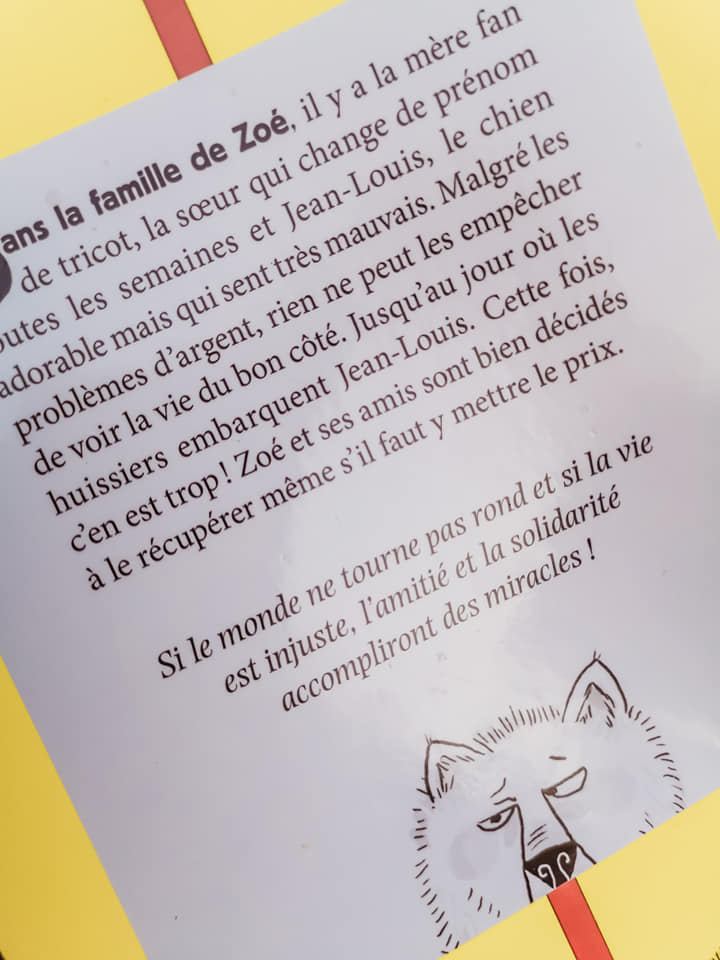 Dans la famille de Zoé, il y a la mère fan
de tricot, la sœur qui change de prénom
outes les semaines et Jean-Louis, le chien
adorable mais qui sent très mauvais. Malgré les
problèmes d'argent, rien ne peut les empêcher
de voir la vie du bon côté. Jusqu'au jour où les
huissiers embarquent Jean-Louis. Cette fois,
c'en est trop ! Zoé et ses amis sont bien décidés
à le récupérer même s'il faut y mettre le prix.
Si le monde ne tourne pas rond et si la vie
est injuste, l'amitié et la solidarité
accompliront des miracles !